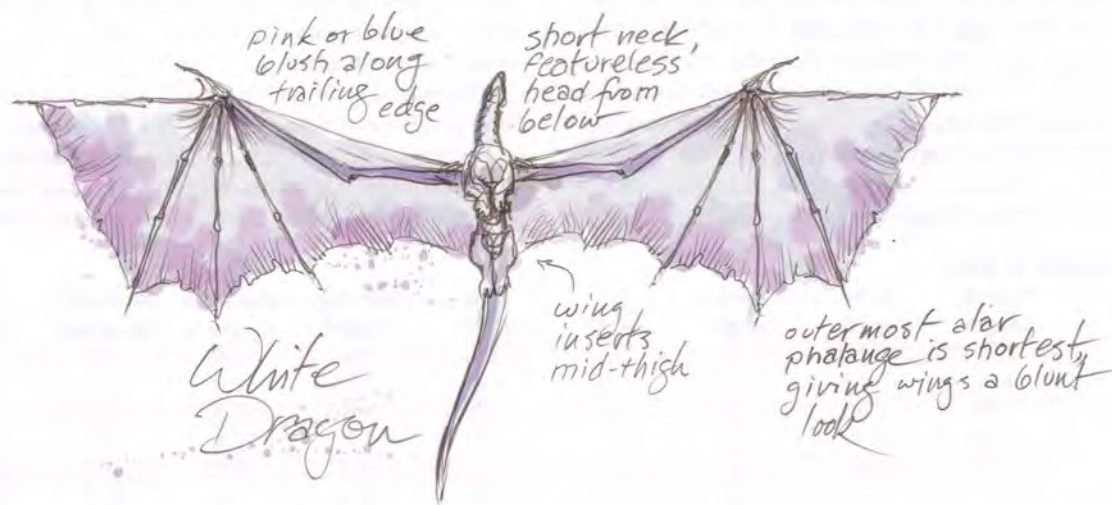 pink or blue
blush along
trailing
edge
short neck,
featureless
head from
below
wing
inserts
mid-thigh
outermost alar
phalange is shortest,
giving wings a blunt
look
White
Dragon